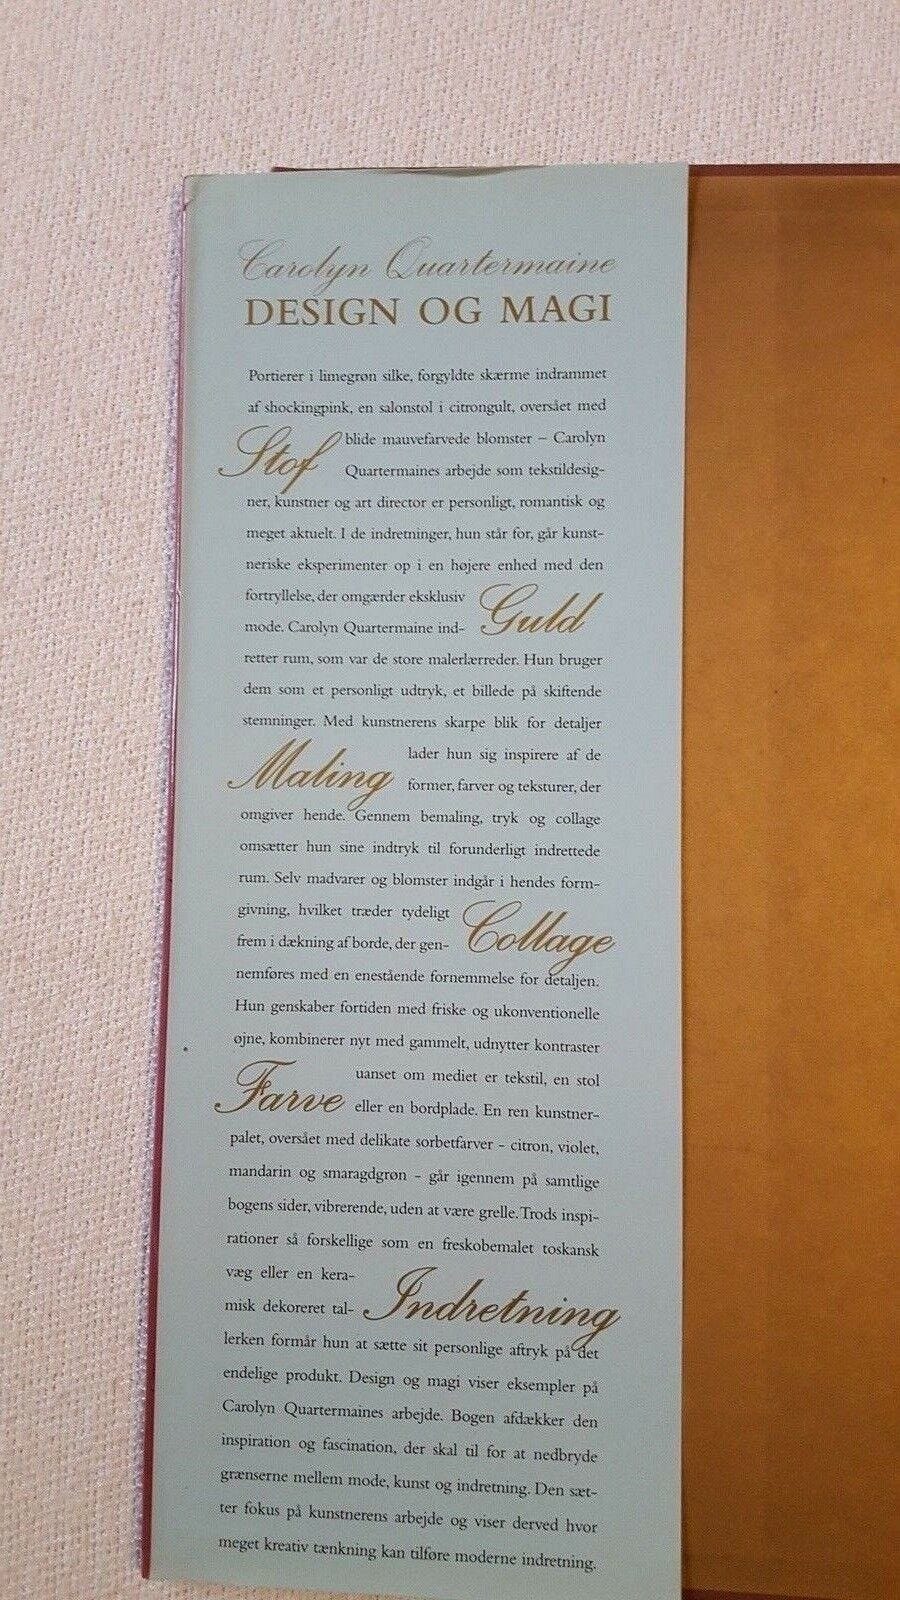 Carolyn Quartermaine
DESIGN OG MAGI
Portierer i limegrøn silke, forgyldte skærme indrammet
af shockingpink, en salonstol i citrongult, oversået med
Stof blide mauvefarvede blomster – Carolyn
Quartermaines arbejde som tekstildesig-
ner, kunstner og art director er personligt, romantisk og
meget aktuelt. I de indretninger, hun står for, går kunst-
neriske eksperimenter op i en højere enhed med den
fortryllelse, der omgærder eksklusiv
mode. Carolyn Quartermaine ind- Guld
retter rum, som var de store malerlærreder. Hun bruger
dem som et personligt udtryk, et billede på skiftende
stemninger. Med kunstnerens skarpe blik for detaljer
lader hun sig inspirere af de
Maling former, farver og teksturer, der
omgiver hende. Gennem bemaling, tryk og collage
omsætter hun sine indtryk til forunderligt indrettede
rum. Selv madvarer og blomster indgår i hendes form-
givning, hvilket træder tydeligt
frem i dækning af borde, der gen- Collage
nemføres med en enestående fornemmelse for detaljen.
Hun genskaber fortiden med friske og ukonventionelle
øjne, kombinerer nyt med gammelt, udnytter kontraster
uanset om mediet er tekstil, en stol
Farve eller en bordplade. En ren kunstner-
palet, oversået med delikate sorbetfarver - citron, violet,
mandarin og smaragdgrøn - går igennem på samtlige
bogens sider, vibrerende, uden at være grelle. Trods inspi-
rationer så forskellige som en freskobemalet toskansk
væg eller en kera-
misk dekoreret tal- Indretning
lerken formår hun at sætte sit personlige aftryk på det
endelige produkt. Design og magi viser eksempler på
Carolyn Quartermaines arbejde. Bogen afdækker den
inspiration og fascination, der skal til for at nedbryde
grænserne mellem mode, kunst og indretning. Den sæt-
ter fokus på kunstnerens arbejde og viser derved hvor
meget kreativ tænkning kan tilføre moderne indretning.